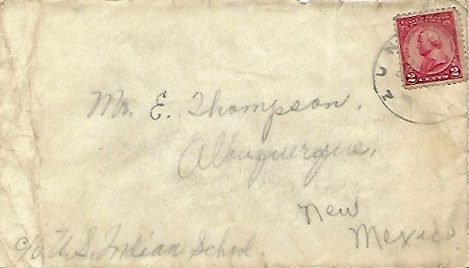 ZUN
2 CENTS 2
Mr. E. Thompson.
Albuquerque,
New
Mexico
c/o U.S. Indian School.